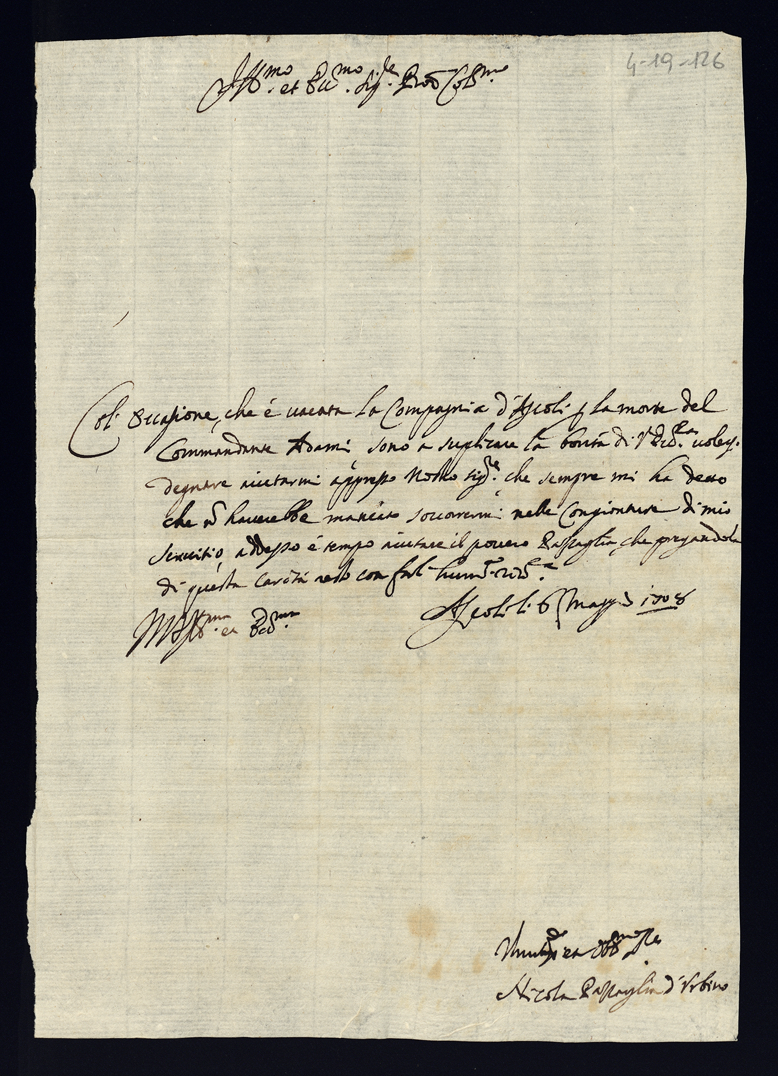 4-19-126
Ill.mo et Ecc.mo Sig.re Prōn Col.mo
Col' Occasione, che è uacata la Compagnia d'Ascoli p la morte del
Commandante Adami sono a suplicare la bontà di V. Ecc.za uolersi
degnare aiutarmi appresso Nostro Sig.re che sempre mi ha detto
che nō hauerebbe mancato soccorermi nelle Congionture di mio
seruitio, addesso è tempo aiutare il pouero Battaglia, che pregandola
di questa Carità resto con farli hum.
Ascoli li 6 Magg. 1708
Ill.mo et Ecc.mo
et obb.mo
Nicola Battaglia d'Urbino